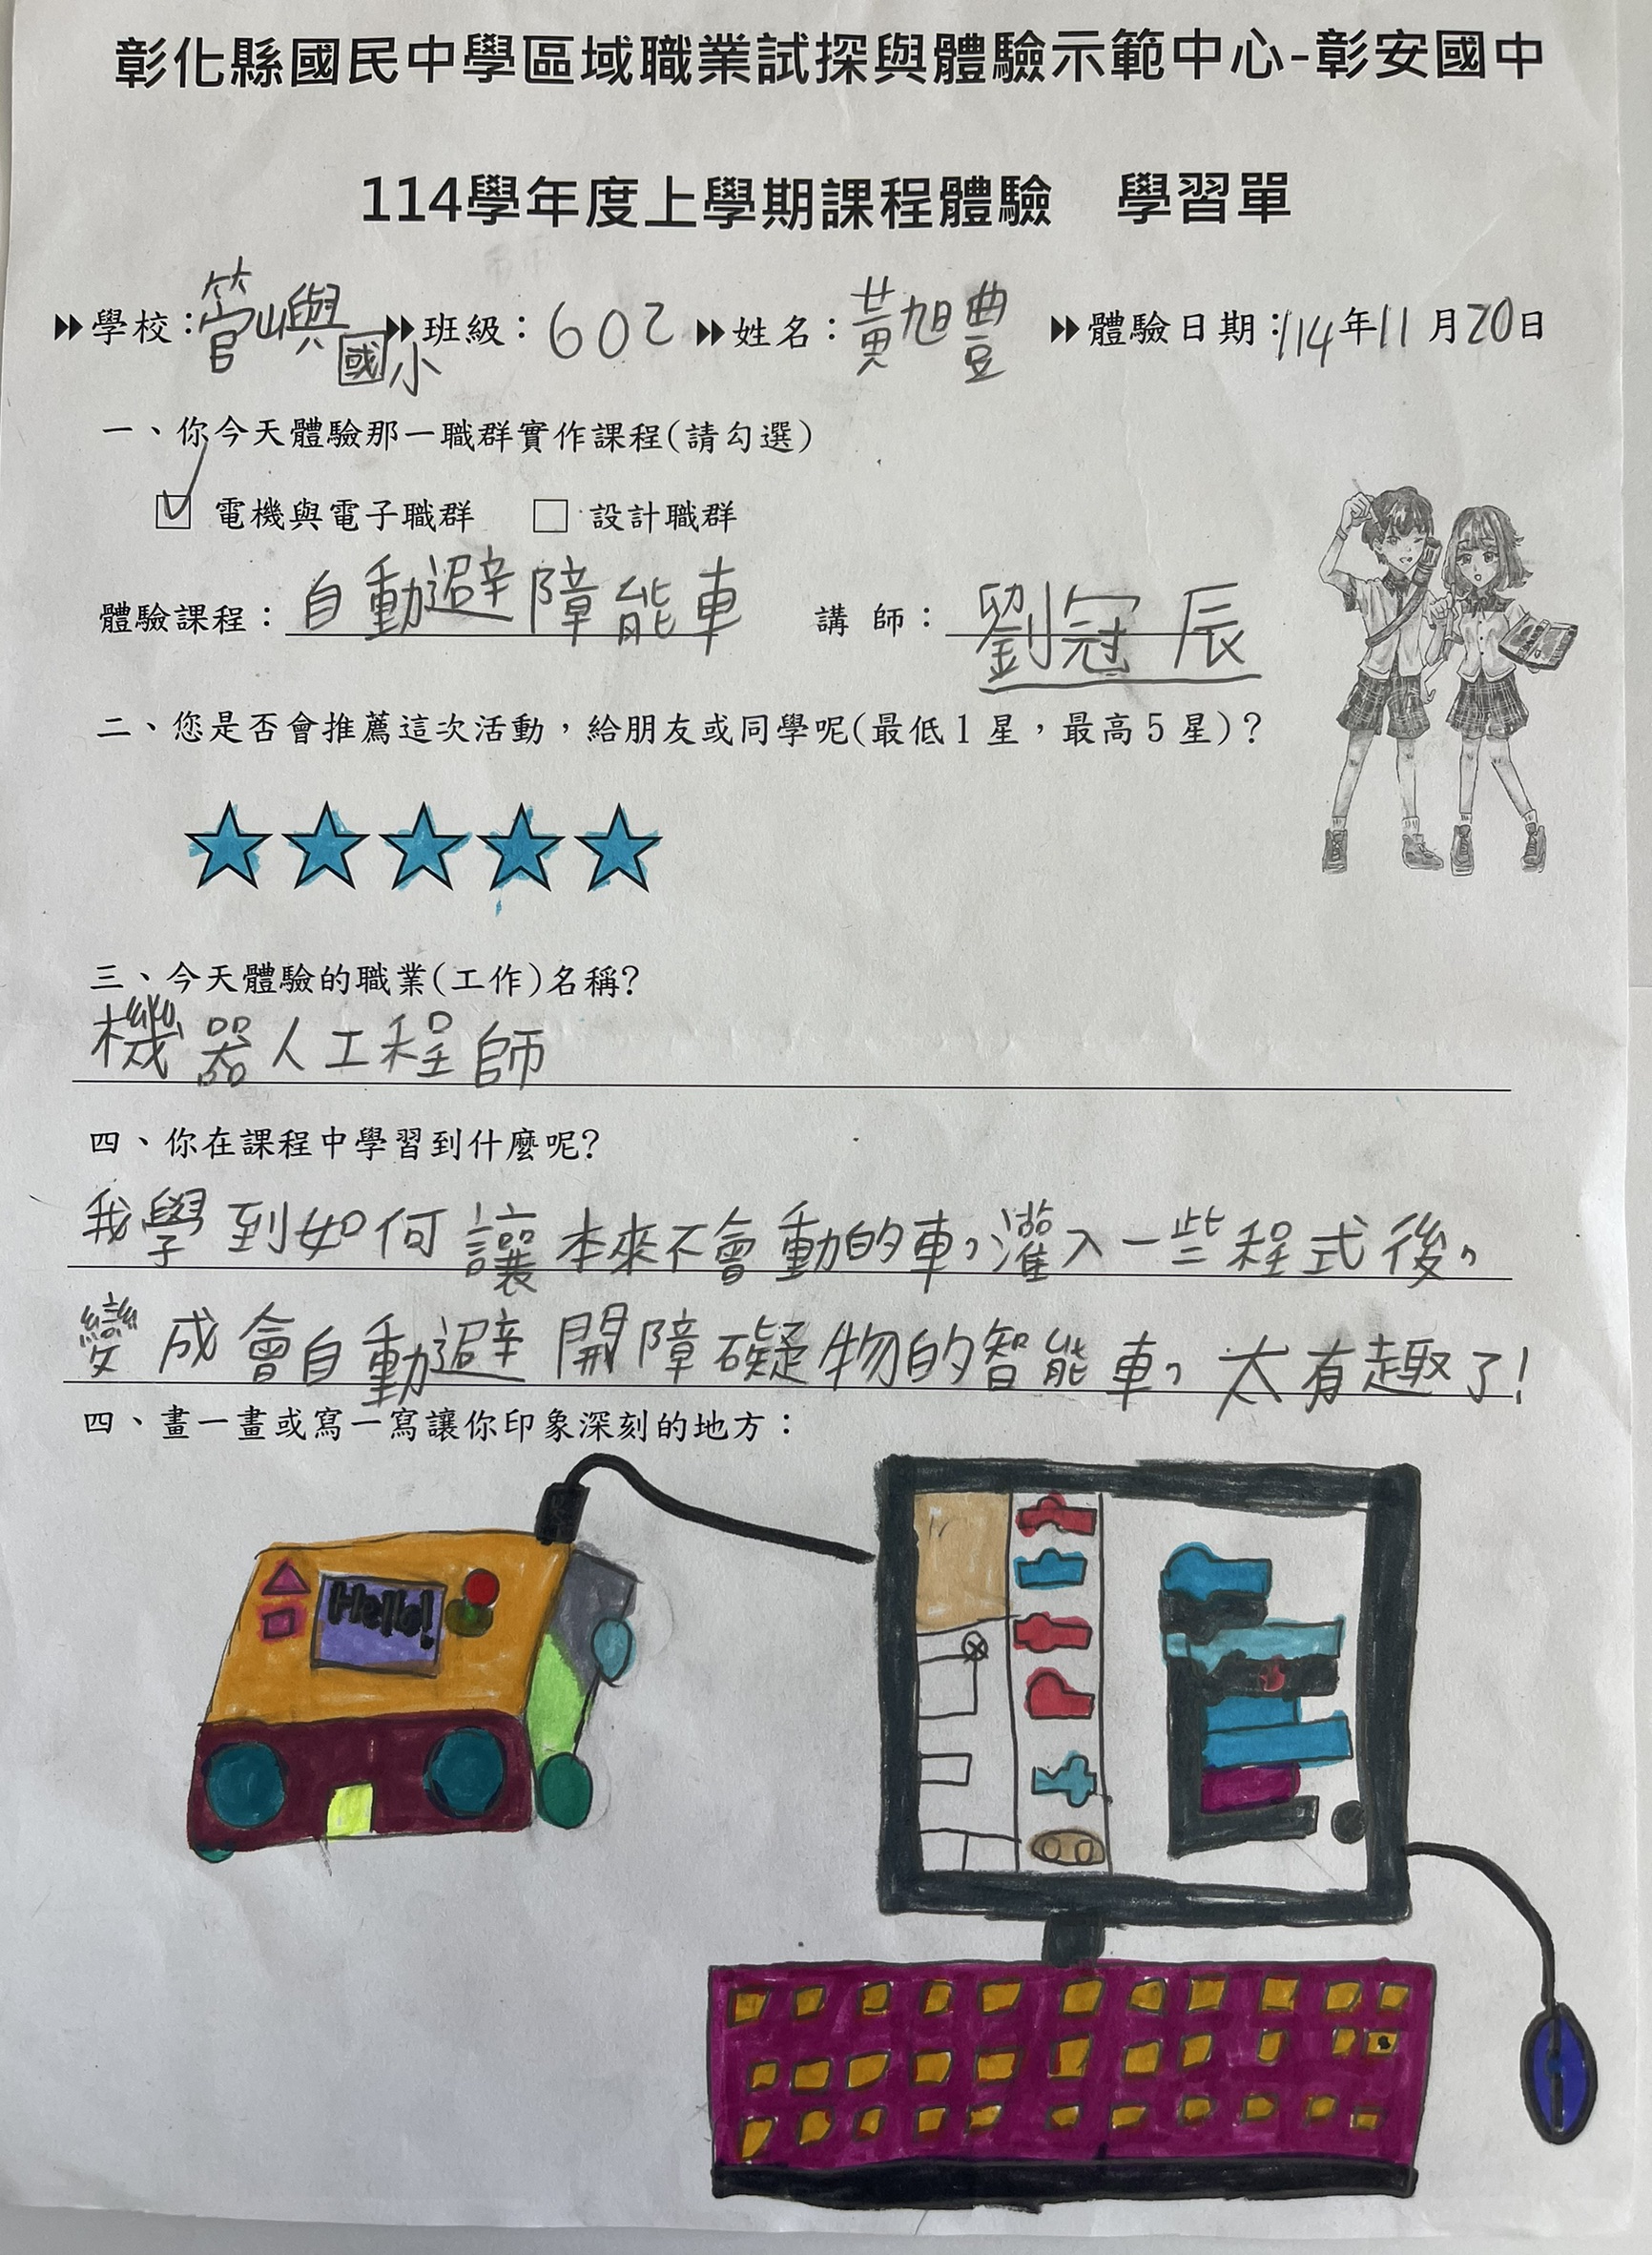 彰化縣國民中學區域職業試探與體驗示範中心-彰安國中
114學年度上學期課程體驗 學習單
學校：管嶼國小 班級：602 姓名：黃旭豊 體驗日期：114年11月20日
一、你今天體驗那一職群實作課程(請勾選)
☑ 電機與電子職群 □ 設計職群
體驗課程：自動避障能車 講 師：劉冠辰
二、您是否會推薦這次活動，給朋友或同學呢(最低1星，最高5星)？
三、今天體驗的職業(工作)名稱?
機器人工程師
四、你在課程中學習到什麼呢?
我學到如何讓本來不會動的車，灌入一些程式後，
變成會自動避開障礙物的智能車，太有趣了!
四、畫一畫或寫一寫讓你印象深刻的地方：
Hello!